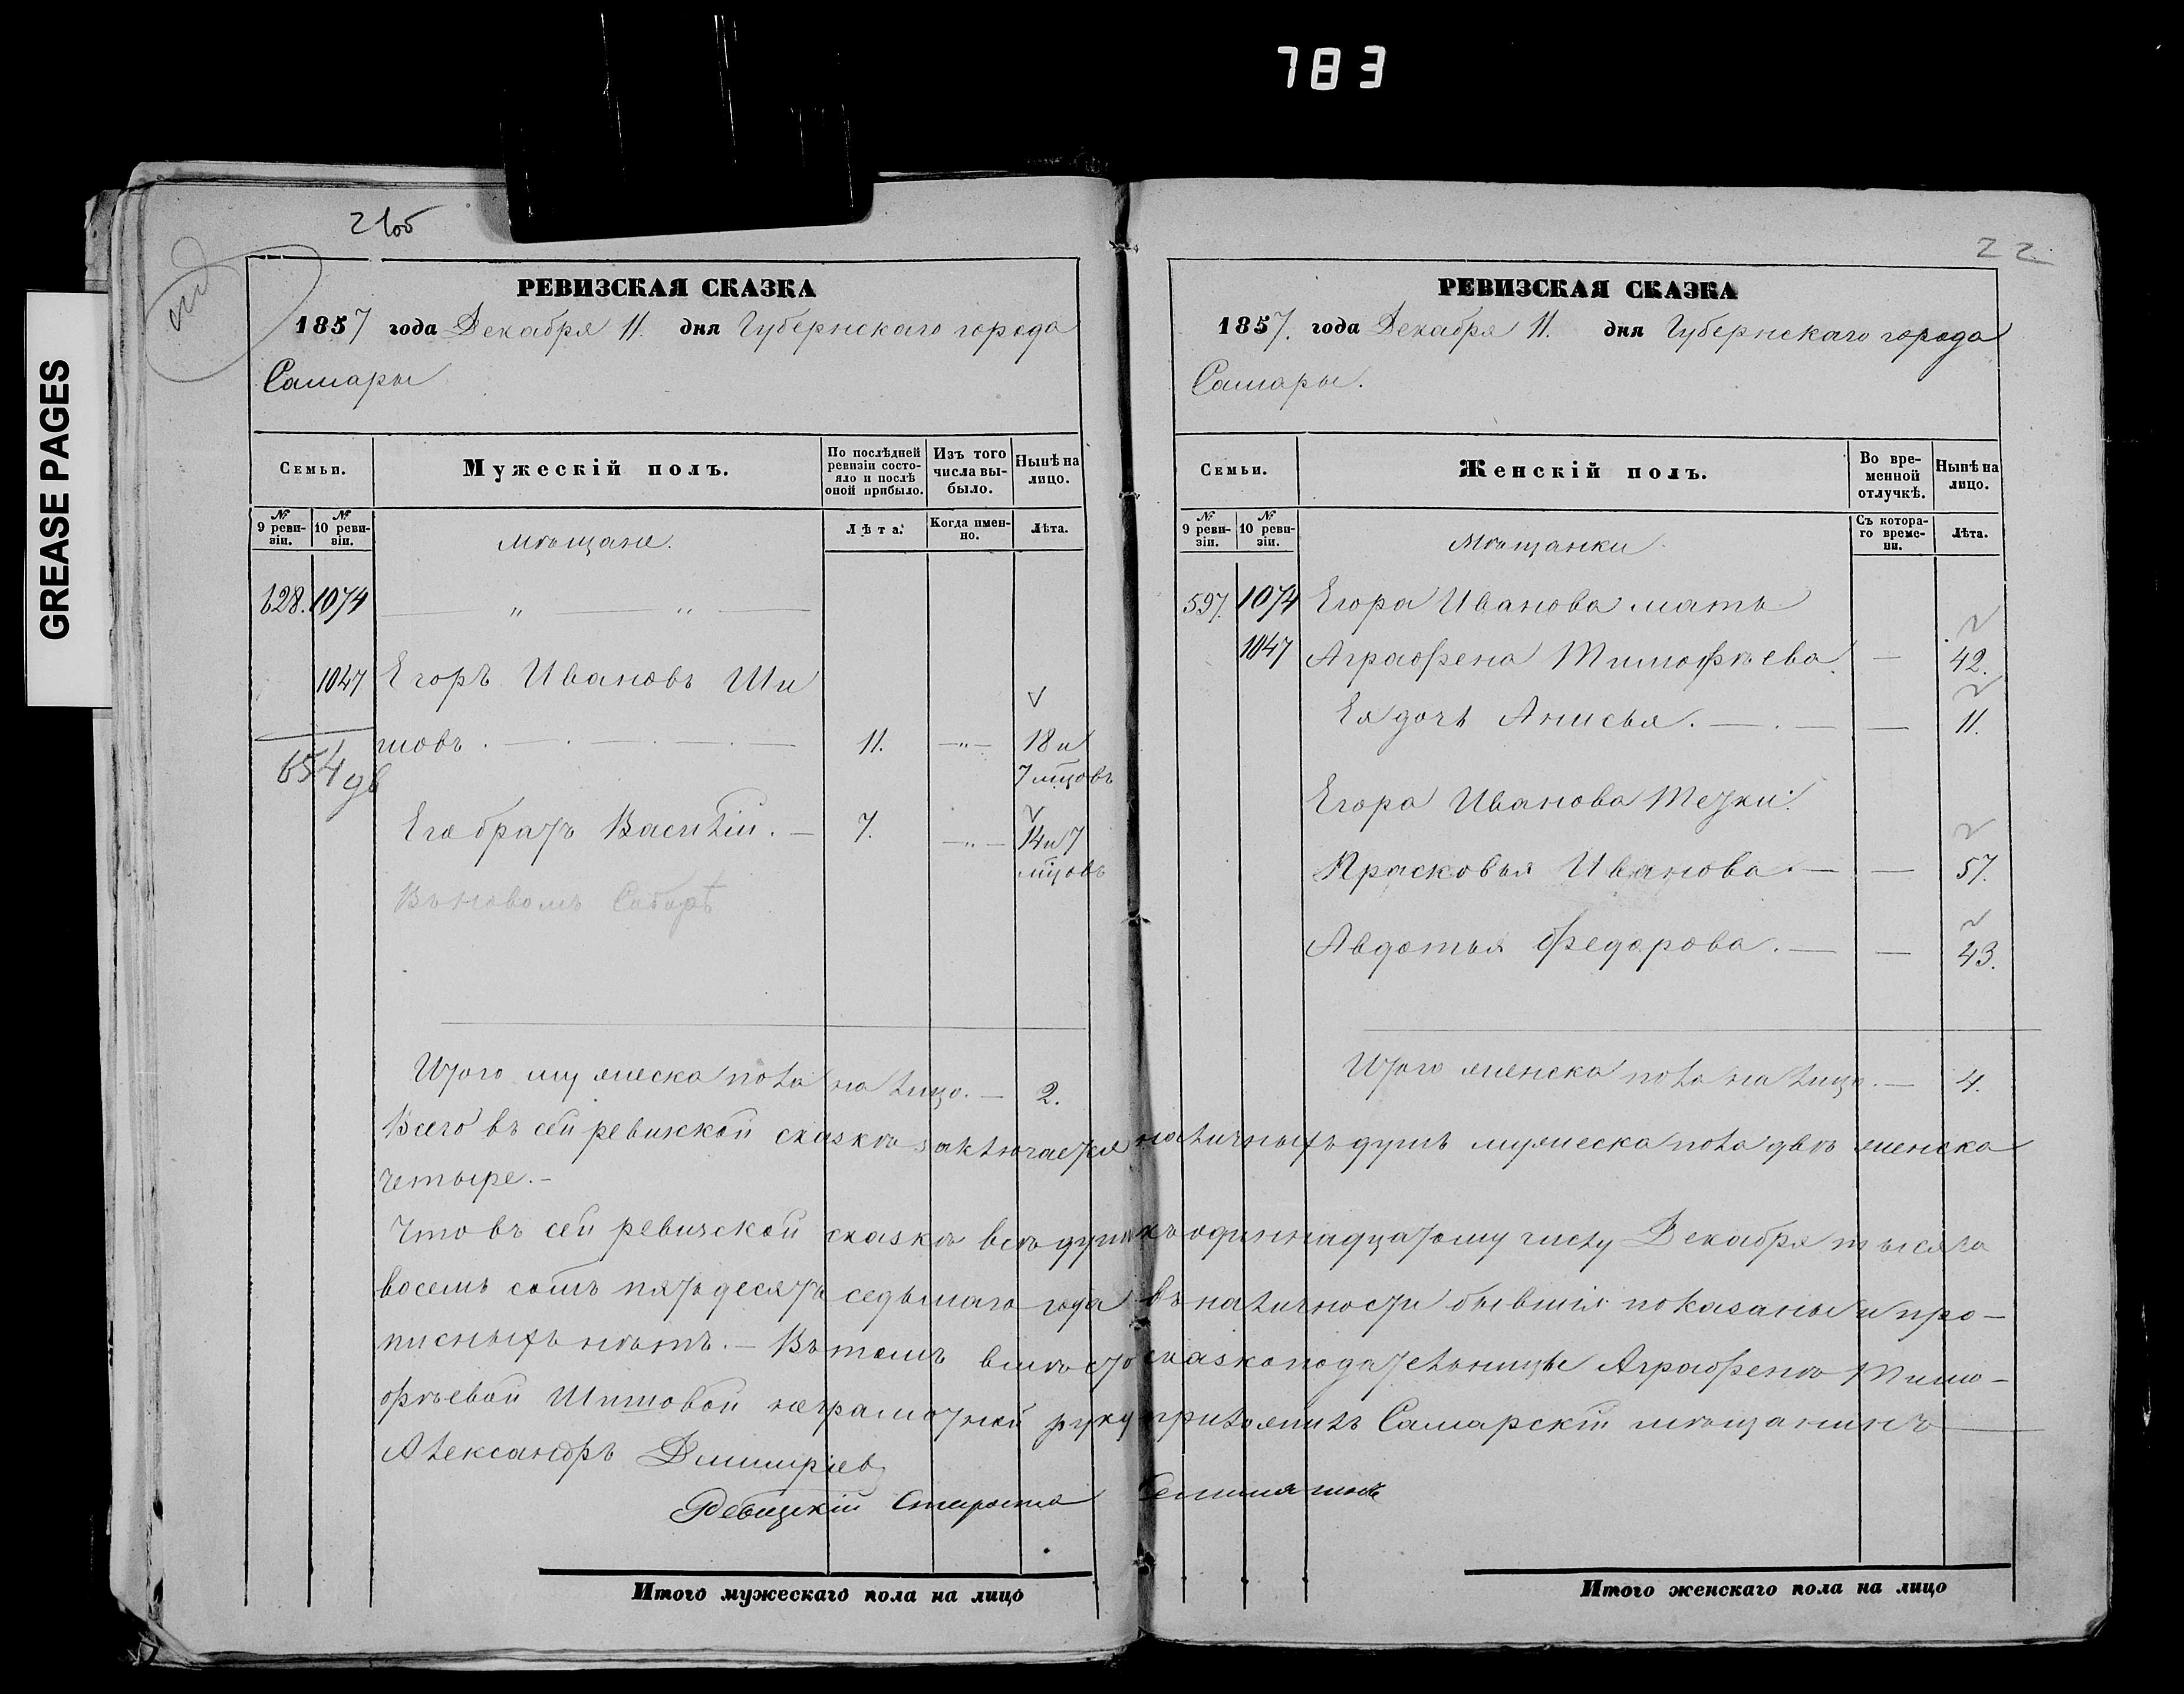 783
GREASE PAGES
21об
РЕВИЗСКАЯ СКАЗКА
1857 года Декабря 11. дня Губернскаго города
Самары
Семьи.
Мужескій полъ.
По послѣдней ревизіи состояло и послѣ оной прибыло.
Изъ того числа выбыло.
Нынѣ на лицо.
№ 9 ревизіи.
№ 10 ревизіи.
Мѣщане.
Лѣта.
Когда именно.
Лѣта.
628. 1074 — " — " —
1047 Егоръ Ивановъ Ши
товъ. — 11. — " — 18 и
7 мцовъ
654 дв
Его братъ Василій. — 7. — " — 14 и 7
мцовъ
Въ новомъ Соборѣ
Итого мужеска пола на лицо. — 2.
22
РЕВИЗСКАЯ СКАЗКА
1857. года Декабря 11. дня Губернскаго города
Самары.
Семьи.
Женскій полъ.
Во временной отлучкѣ.
Нынѣ на лицо.
№ 9 ревизіи.
№ 10 ревизіи.
Мѣщанки
Съ котораго времени.
Лѣта.
597. 1074 Егора Иванова мать
1047 Аграфена Тимофѣева. — 42.
Ея дочь Анисья. — — 11.
Егора Иванова Тетки:
Прасковья Иванова. — — 57.
Авдотья Федорова. — — 43.
Итого женска пола на лицо. — 4.
Всего въ сей ревизской сказкѣ заключается наличныхъ душъ мужеска пола двѣ женска
четыре. —
Что въ сей ревизской сказкѣ всѣ души къ одиннадцатому числу Декабря тысяча
восемь сотъ пятьдесятъ седьмаго года въ наличности бывшія показаны и про-
писныхъ нѣтъ. — Въ томъ вмѣсто сказкоподательницы Аграфены Тимо-
фѣевой Шитовой неграмотной руку приложилъ Самарскій мѣщанинъ
Александръ Дмитріев
Ревизскій Староста
Итого мужескаго пола на лицо
Итого женскаго пола на лицо